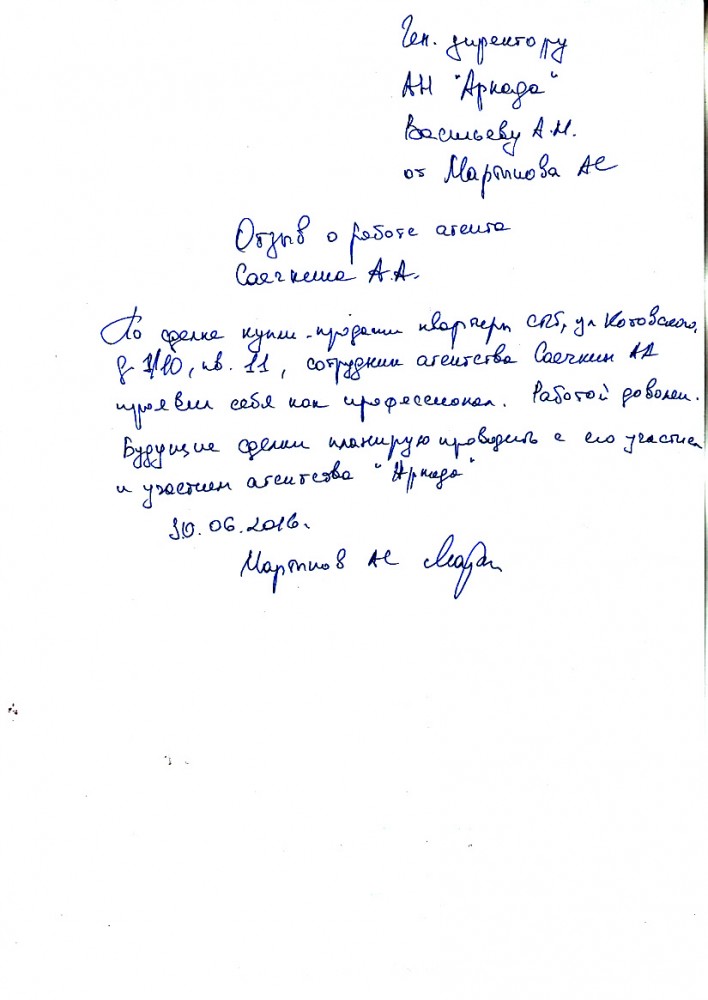 Ген. директору
АН "Аркада"
Васильеву А.М.
от Мартынова АС
Отзыв о работе агента
Саечкина А.А.
По сделке купли-продажи квартиры СПб, ул Котовского,
д 1/10, кв. 11, сотрудник агентства Саечкин АА
проявил себя как профессионал. Работой доволен.
Будущие сделки планирую проводить с его участием
и участием агентства "Аркада"
30.06.2016.
Мартынов АС